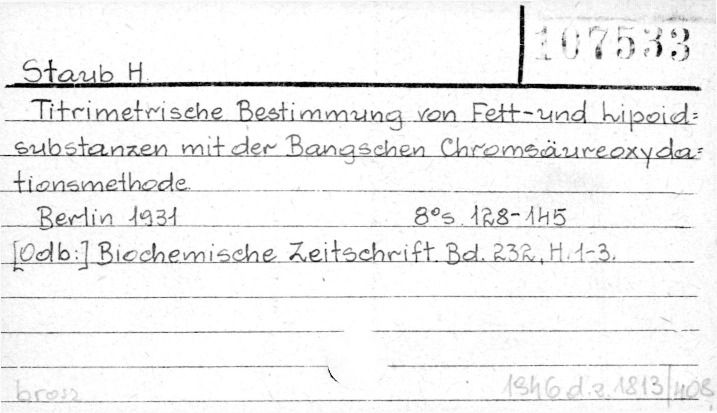 107533
Staub H.
Titrimetrische Bestimmung von Fett-und Lipoid=
substanzen mit der Bangschen Chromsäureoxyda=
tionsmethode
Berlin 1931 8°s. 128-145
[Odb:] Biochemische Zeitschrift. Bd. 232, H. 1-3.
brosz 1946 d. z. 1813/408